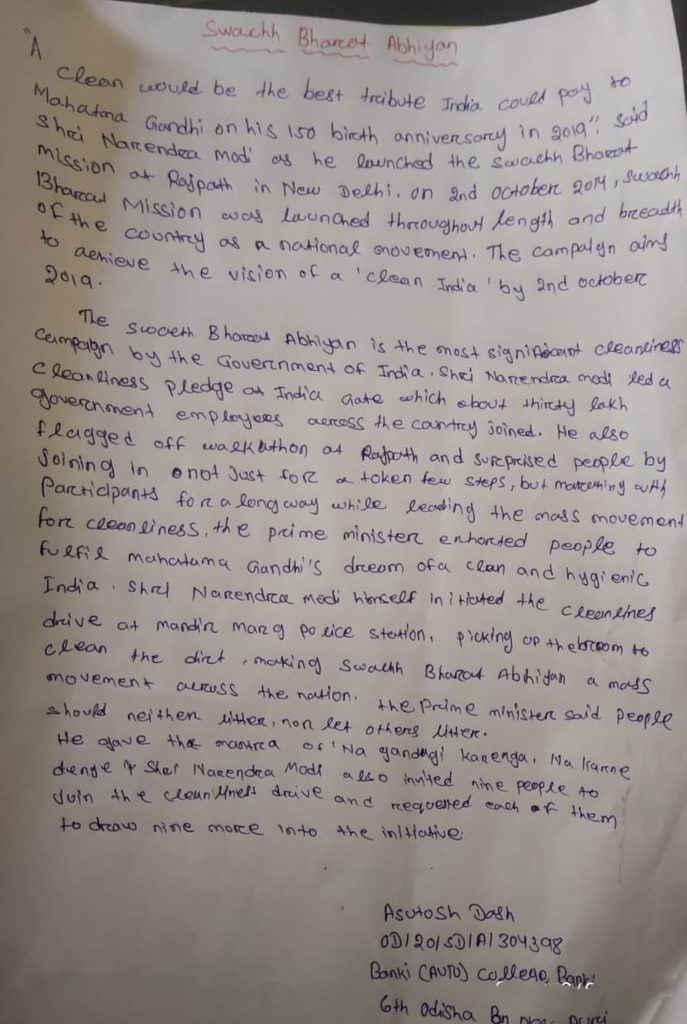 Swachh Bharat Abhiyan
"A
clean would be the best tribute India could pay to
Mahatma Gandhi on his 150 birth anniversary in 2019", said
Shri Narendra Modi as he launched the Swachh Bharat
mission at Rajpath in New Delhi. on 2nd october 2014, Swachh
Bharat Mission was launched throughout length and breadth
of the country as a national movement. The campaign aims
to achieve the vision of a 'clean India' by 2nd october
2019.
The Swachh Bharat Abhiyan is the most significant cleanliness
campaign by the Government of India. Shri Narendra modi led a
cleanliness pledge at India Gate which about thirty lakh
government employees across the country joined. He also
flagged off walkathon at Rajpath and surprised people by
joining in not just for a token few steps, but marching with
Participants for a long way while leading the mass movement
for cleanliness, the prime minister exhorted people to
fulfil mahatama Gandhi's dream of a clan and hygienic
India. Shri Narendra Modi himself initiated the cleanlines
drive at mandir marg police station, picking up the broom to
clean the dirt, making Swachh Bharat Abhiyan a mass
movement across the nation. The Prime minister said people
should neither litter, nor let others litter.
He gave the mantra of 'Na gandagi karenge, Na karne
denge' Shri Narendra Modi also invited nine people to
join the cleanliness drive and requested each of them
to draw nine more into the initiative
Asutosh Dash
OD/20/SD/A/304398
Banki (AUTO) college, Banki
6th Odisha Bn